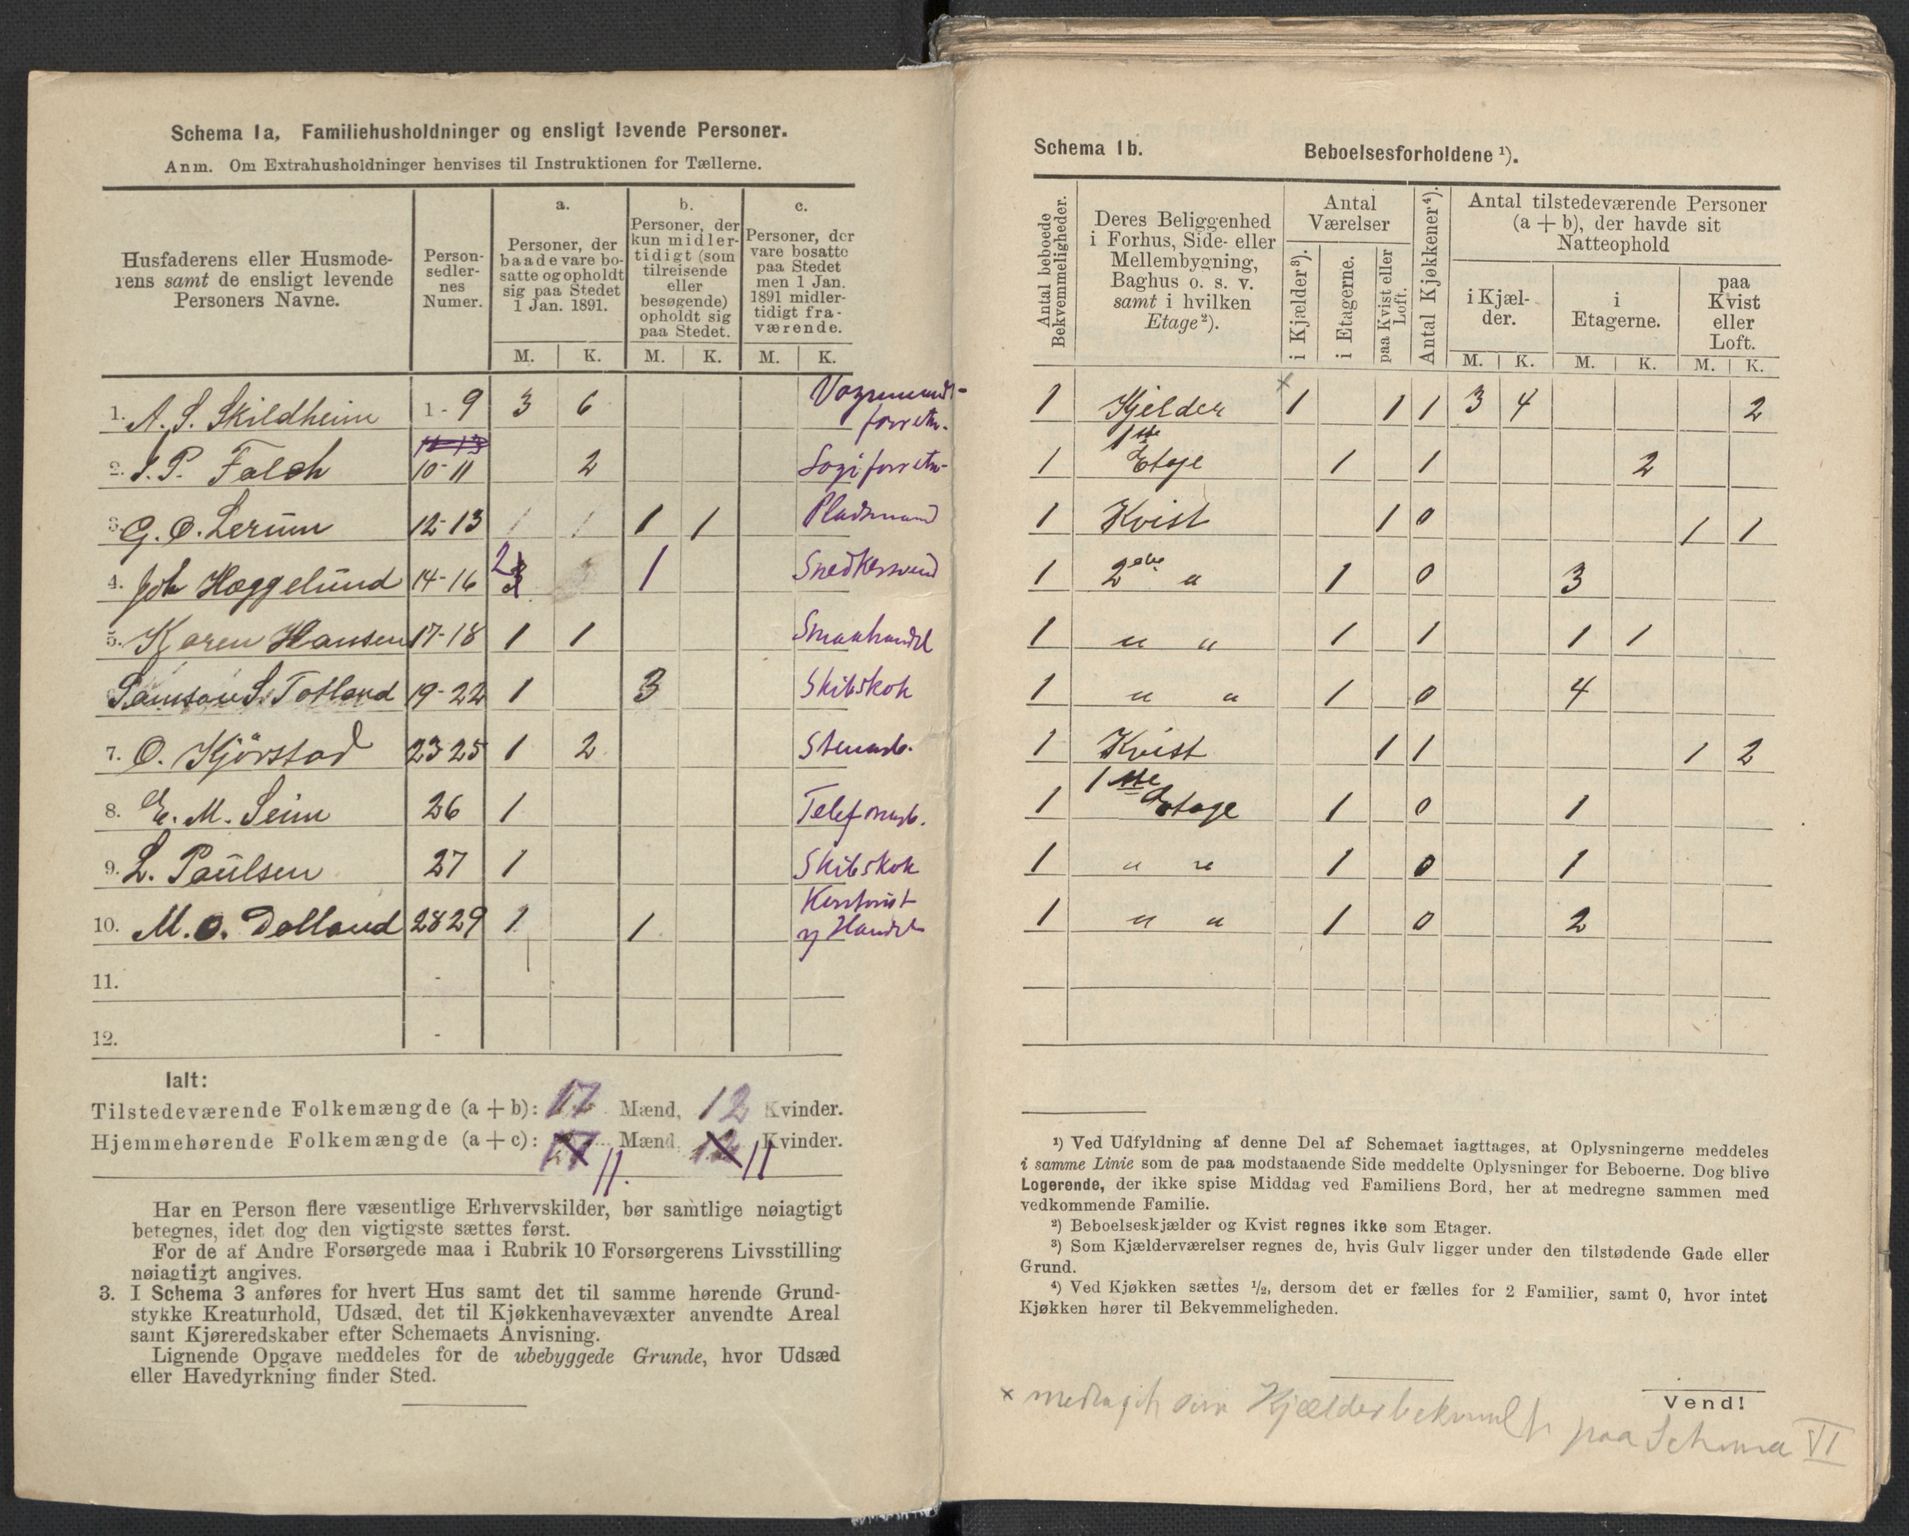 Schema 1a. Familiehusholdninger og ensligt levende Personer.
Anm. Om Extrahusholdninger henvises til Instruktionen for Tællerne.
Husfaderens eller Husmoderens samt de ensligt levende Personers Navne.
Personsedlernes Numer.
a.
Personer, der baade vare bosatte og opholdt sig paa Stedet 1 Jan. 1891.
b.
Personer, der kun midlertidigt (som tilreisende eller besøgende) opholdt sig paa Stedet.
c.
Personer, der vare bosatte paa Stedet men 1 Jan. 1891 midlertidigt fraværende.
M. K. M. K. M. K.
1. A. S. Skildheim 1-9 3 6
2. S. P. Falch 10-11 2
3. G. O. Lerum 12-13 1 1 1 1 Pladsmand
4. Joh Hæggelund 14-16 2 1 Snedkersvend
5. Karen Hansen 17-18 1 1 Smaahandel
6. Samson S. Totland 19-22 1 3 Skibskok
7. O. Kjörstad 23-25 1 2 Stenarb.
8. E. M. Seim 26 1 Telefonarb.
9. L. Paulsen 27 1 Skibskok
10. M. O. Dolland 28 29 1 1 Kontorist
Handel
11. -
12. -
Ialt:
Tilstedeværende Folkemængde (a + b): 17 Mænd, 12 Kvinder.
Hjemmehørende Folkemængde (a + c): 11. Mænd, 11 Kvinder.
Har en Person flere væsentlige Erhvervskilder, bør samtlige nøiagtigt
betegnes, idet dog den vigtigste sættes først.
For de af Andre Forsørgede maa i Rubrik 10 Forsørgerens Livsstilling
nøiagtigt angives.
3. I Schema 3 anføres for hvert Hus samt det til samme hørende Grund-
stykke Kreaturhold, Udsæd, det til Kjøkkenhavevæxter anvendte Areal
samt Kjøreredskaber efter Schemaets Anvisning.
Lignende Opgave meddeles for de ubebyggede Grunde, hvor Udsæd
eller Havedyrkning finder Sted.
Schema 1b. Beboelsesforholdene ¹).
Antal beboede Bekvemmeligheder.
Deres Beliggenhed i Forhus, Side- eller Mellembygning, Baghus o. s. v. samt i hvilken Etage²).
Antal Værelser
i Kjælder³).
i Etagerne.
paa Kvist eller Loft.
Antal Kjøkkener⁴).
Antal tilstedeværende Personer (a + b), der havde sit Natteophold
i Kjælder.
i Etagerne.
paa Kvist eller Loft.
M. K. M. K. M. K.
1 Kjelder × 1 1 1 3 4 2
1 1ste Etage 1 1 2
1 Kvist 1 0 1 1
1 2den " 1 0 3
1 " " 1 1 1 1
1 " " 1 0 4
1 Kvist 1 1 1 2
1 1ste Etage 1 0 1
1 " " 1 0 1
1 " " 1 0 2
¹) Ved Udfyldning af denne Del af Schemaet iagttages, at Oplysningerne meddeles
i samme Linie som de paa modstaaende Side meddelte Oplysninger for Beboerne. Dog blive
Logerende, der ikke spise Middag ved Familiens Bord, her at medregne sammen med
vedkommende Familie.
²) Beboelseskjælder og Kvist regnes ikke som Etager.
³) Som Kjælderværelser regnes de, hvis Gulv ligger under den tilstødende Gade eller
Grund.
⁴) Ved Kjøkken sættes ½, dersom det er fælles for 2 Familier, samt 0, hvor intet
Kjøkken hører til Bekvemmeligheden.
Vend!
× medtaget som Kjælderbekveml.h. paa Schema VI